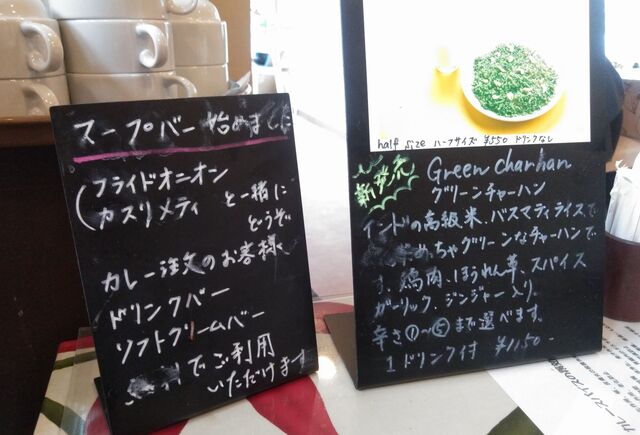 スープバー始めました
(フライドオニオン
カスリメティ と一緒に
どうぞ
カレー注文のお客様
ドリンクバー
ソフトクリームバー
でご利用
いただけます
half size ハーフサイズ ¥550 ドリンクなし
新発売
Green charhan
グリーンチャーハン
インドの高級米、バスマティライスで
めっちゃグリーンなチャーハンで
す、鶏肉、ほうれん草、スパイス
ガーリック、ジンジャー入り。
辛さ①〜⑤まで選べます。
1ドリンク付 ¥1150-